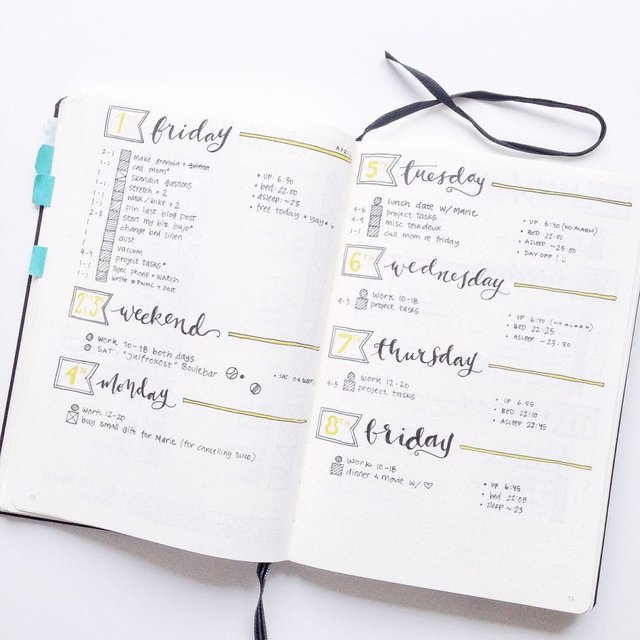 1ST friday
APRIL
2-1 make granola + quinoa
1-1 call mom*
skandia questions
stretch x 2
walk/bike x 2
pin last blog post
2-3 start my biz bujo*
change bed linen
dust
vacuum
4-9 project tasks*
1-1 sync phone + watch
write + post
• UP: 6:30
• bed: 22:00
• asleep: ~23
• free today + yay
2ND & 3RD weekend
work 10-18 both days
SAT: "Julfrokost" Boulebar
• SAT:
4TH monday
work 12-20
buy small gift for Marie (for cancelling twice)
5TH tuesday
lunch date w/ Marie
4-6 project tasks
4-9 misc teuxdeux
1-1 call mom re friday
• UP 6:40 (NO ALARM)
• BED 22:50
• ASLEEP ~23:50
• DAY OFF!
6TH wednesday
work 10-18
4-3 project tasks
• UP 6:40 (NO ALARM)
• BED 22:25
• ASLEEP ~23:30
7TH thursday
work 12-20
4-5 project tasks
• UP 6:55
• BED 22:10
• ASLEEP 22:45
8TH friday
work 10-18
dinner & movie w/ ♡
• up 6:45
• bed 22:08
• sleep ~23